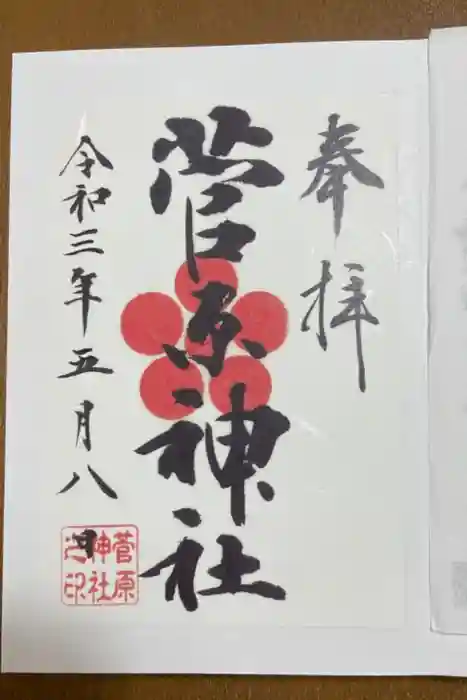 奉拝
菅原神社
令和三年五月八日
菅原
神社
之印